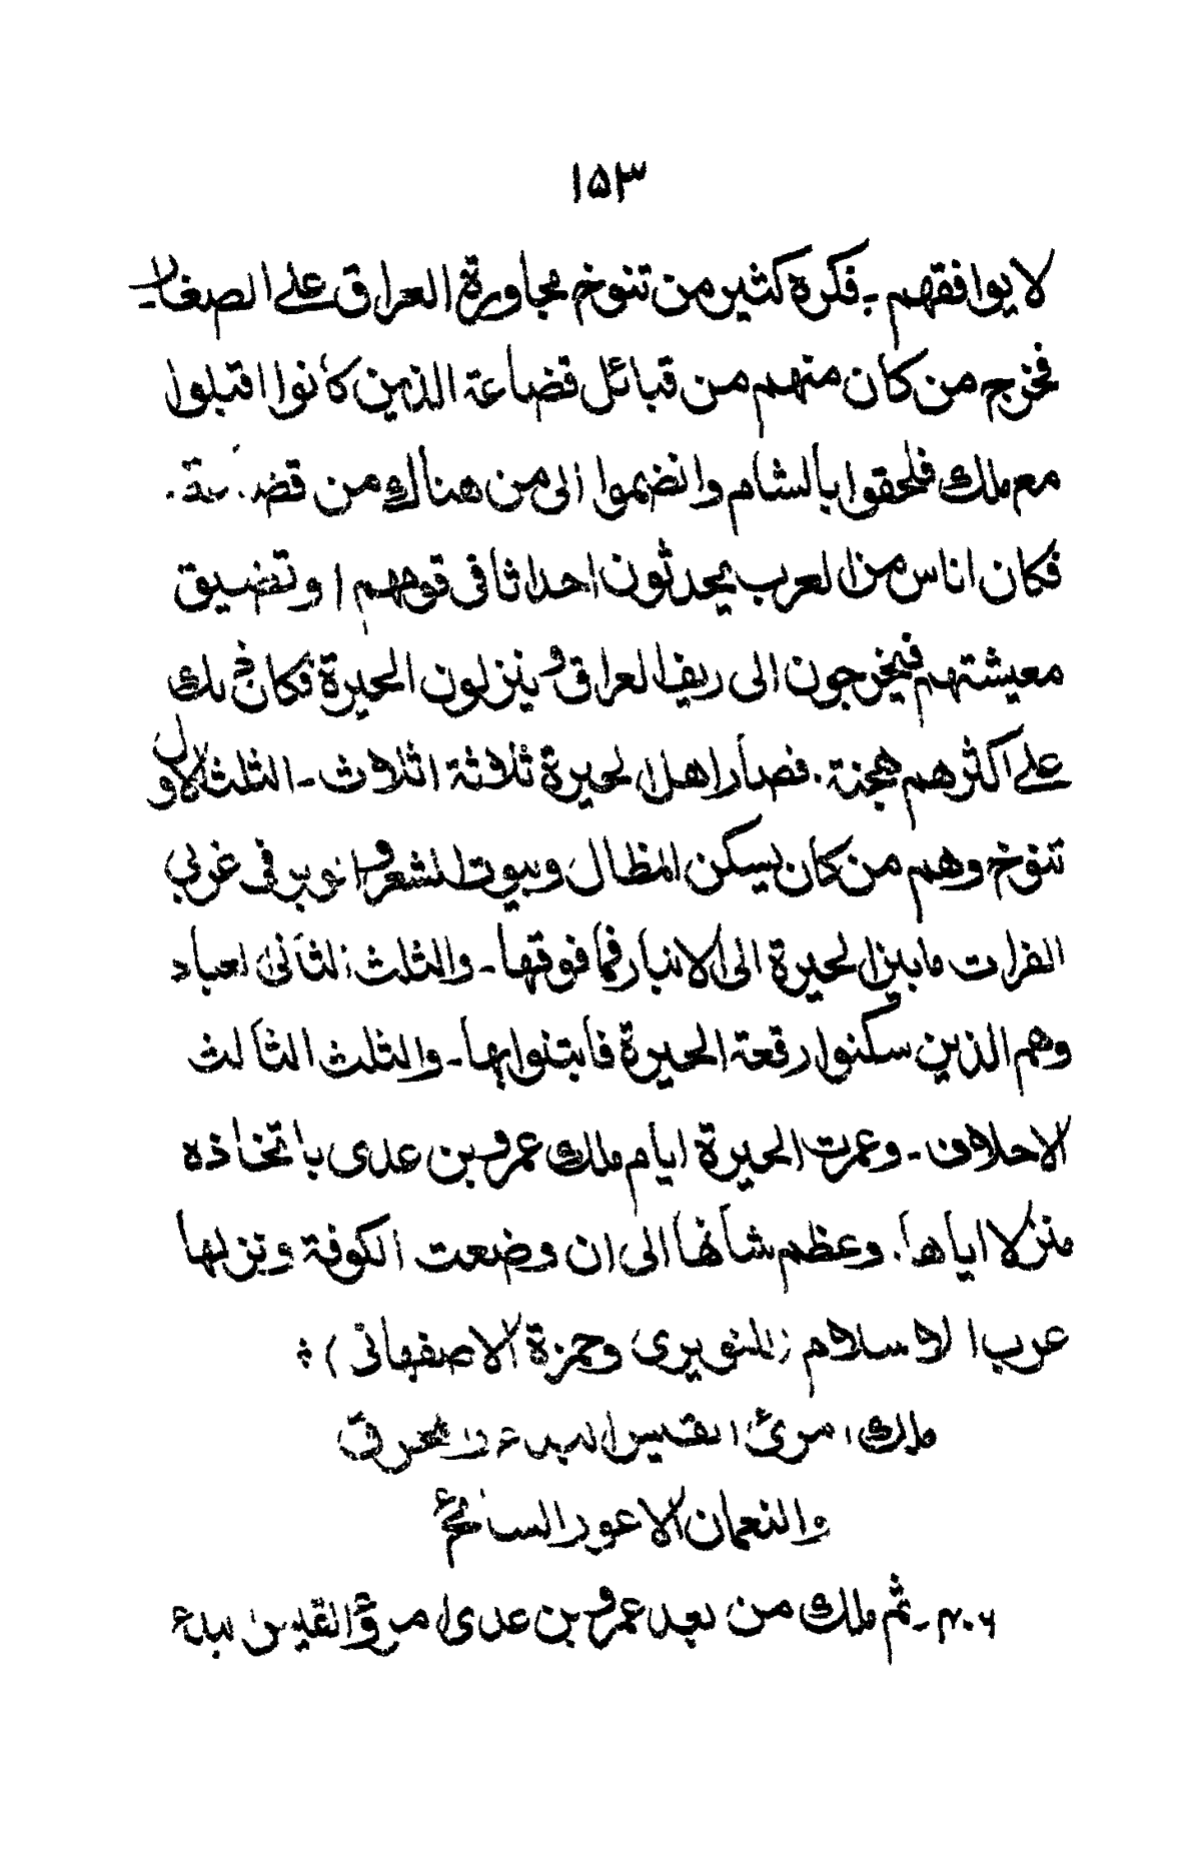 ١٥٣
لا يوافقهم - فكره كثير من تنوخ مجاورة العراق على الصغار -
فخرج من كان منهم من قبائل قضاعة الذين كانوا اقبلوا
مع ملك فلحقوا بالشام وانضموا الى من هنالك من قضاعة.
فكان اناس من العرب يحدثون احداثا في قومهم او تضيق
معيشتهم فيخرجون الى ريف العراق و ينزلون الحيرة فكان ذلك
على اكثرهم هجنة. فصار اهل الحيرة ثلاثة اثلاث - الثلث الاول
تنوخ وهم من كان يسكن المظال وبيوت الشعر و الوبر في غربي
الفرات ما بين الحيرة الى الانبار فما فوقها - والثلث الثاني العباد
وهم الذين سكنوا رقعة الحيرة فابتنوا بها - والثلث الثالث
الاحلاف - وعمرت الحيرة ايام ملك عمرو بن عدى باتخاذه
منزلا اياها. وعظم شأنها الى ان وضعت الكوفة ونزلها
عرب الاسلام (النويرى وحمزة الاصفهانى) ؞
ملك امرئ القيس البدء والمحرق
والنعمان الاعور السائح
٢٠٦ - ثم ملك من بعد عمرو بن عدى امرؤ القيس البدء